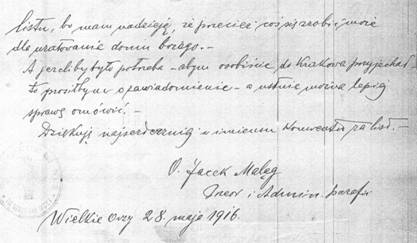 listu, bo mam nadzieję, że przecież coś się zrobi, może
dla uratowania domu bożego.-
A jezeliby było potrzeba - abym osobiście do Krakowa przyjechał,
to prosiłbym o zawiadomienie - a ustnie można lepiej
sprawę omówić.-
Dziękuję najserdeczniej w imieniu Konwentu za list.-
O. Jacek Maleg
i Admin. parafii
Wielkie Oczy 28. maja 1916.